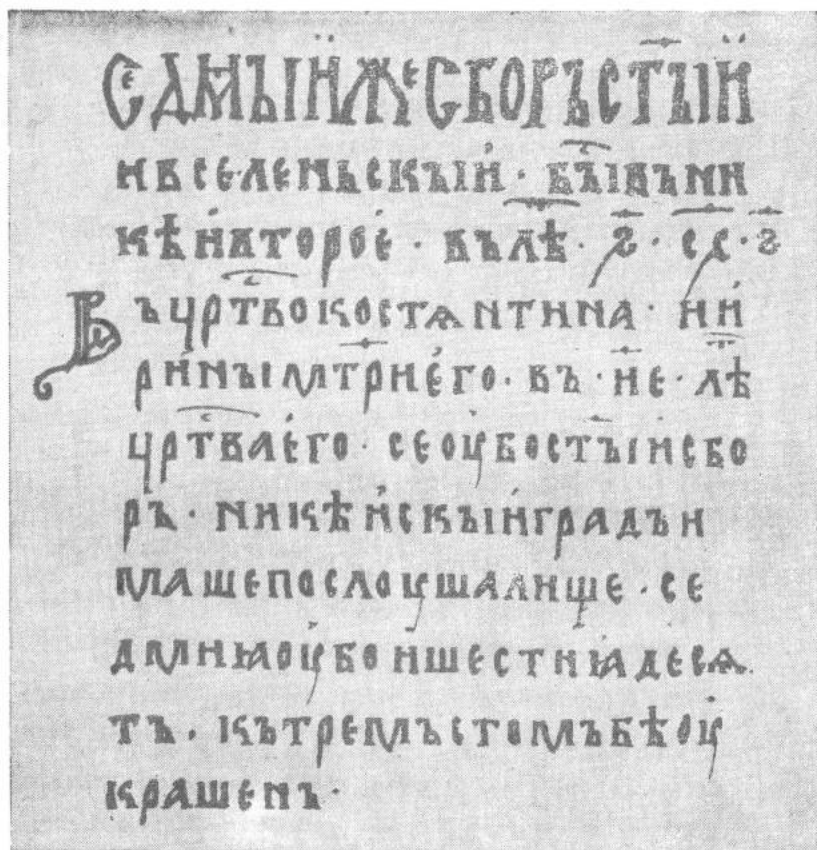 СЕДМЪІИ҆ЖЕСБОРЪСТ҃ЪІИ
ИВСЕЛЕНЬСКЪІИ҆ · БЪІⷭ҇ВЪНИ
КѢИ҆ВТОРОЕ҆ · ВЪЛѢ · ҂ѕ҃ · с҃с · ѕ҃
Въцрⷭ҇твокостѧнтина · ии҆
ри҆нꙑмт҃рие҆го · въ · и҃е · лѣ
црⷭ҇твае҆го · сеоубост҃ъіисбо
ръ · никѣи҆скъіи҆градъи
машепослоушалище · се
дмиꙗоубои҆шестиꙗдесѧ
тъ · кътремъстомъбѣоу
крашенъ ·